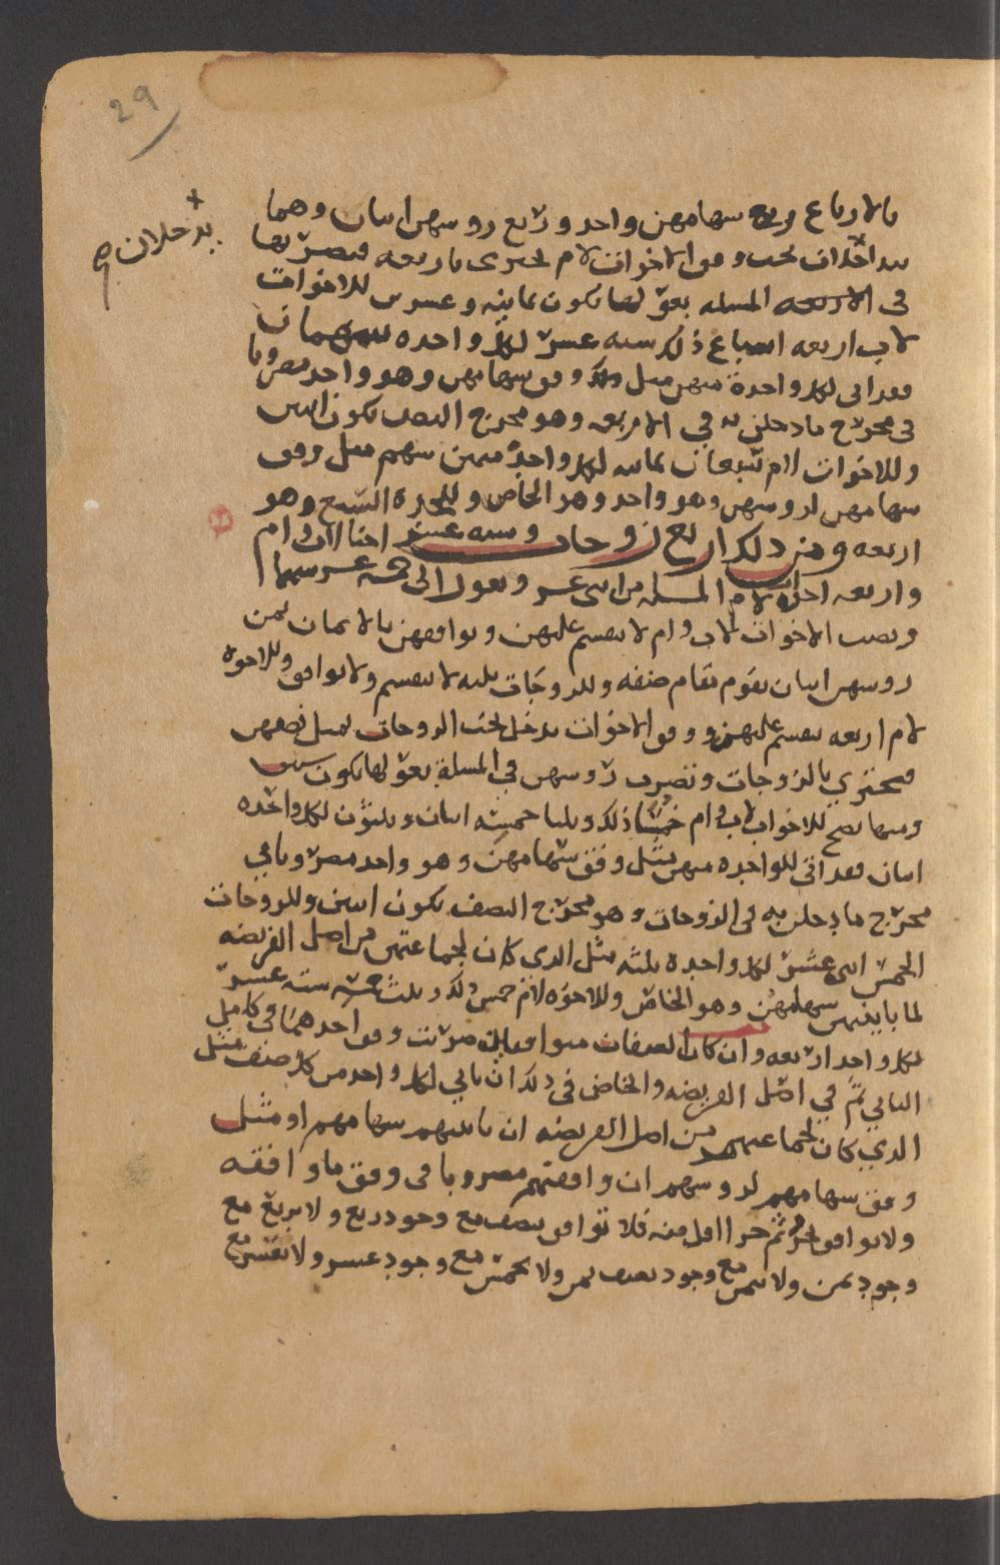 29
بالارباع وربع سهامهن واحد وربع روسهن اثنان وهما
يدخلان صح
يتداخلان تحت وفق الاخوات لام فتجتزى باربعه وتضربها
فى الاربعه المسله بعولها تكون ثمانيه وعشرين للاخوات
لاب اربعه اسباع ذلك سته عشر لكل واحده سهمان
فقد اتى لكل واحدة منهن مثل وفق سهامهن وهو واحد مضروبا
فى مخرج ما دخلن به في الاربعه وهو مخرج النصف يكون اثنين
وللاخوات لام سبعان ثمانيه لكل واحدة منهن سهم مثل وفق
سهامهن لروسهن وهو واحد وهو الخاص وللجدة السبع وهو
اربعه ومن ذلك اربع زوجات وسته عشر اختا لاب وام
واربعه اخوة لام المسله من اثنى عشر وتعول الى خمسه عشر سهما
ونصيب الاخوات لاب وام لا ينقسم عليهن ويوافقهن بالاثمان ثمن
روسهن اثنان يقوم مقام صنفه وللزوجات ثلثه لا ينقسم ولا يوافق وللاخوة
لام اربعه ينقسم عليهم ووفق الاخوات يدخل تحت الزوجات لمثل نصفهن
فتجتزي بالزوجات وتضرب روسهن في المسلة بعولها تكون ستين
ومنها تصح للاخوات لاب وام خمسا ذلك وثلثا خمسه اثنان وثلثون لكل واحده
اثنان فقد اتى للواحده منهن مثل وفق سهامهن وهو واحد مضروبا في
مخرج ما دخلن به فى الزوجات وهو مخرج النصف يكون اثنين وللزوجات
الخمس اثنى عشر لكل واحدة ثلثه مثل الذى كان لجماعتهن من اصل الفريضه
لما باينهن سهامهن وهو الخاص وللاخوه لام خمس ذلك وثلث خمسه سته عشر
لكل واحد اربعه وان كان الصنفان متوافقان ضربت وفق احدهما في كامل
الثاني ثم في اصل الفريضه والخاص فى ذلك ان ياتي لكل واحد من كل صنف مثل
الذي كان لجماعتهم من اصل الفريضه ان باينتهم سهامهم او مثل
وفق سهامهم لروسهم ان وافقتهم مضروبا فى وفق ما وافقه
ولا يوافق بجزء ثم جزءا اقل منه فلا توافق بنصف مع وجود ربع ولا بربع مع
وجود ثمن ولا بثمن مع وجود نصف ثمن ولا بخمس مع وجود عشر ولا بعشر مع